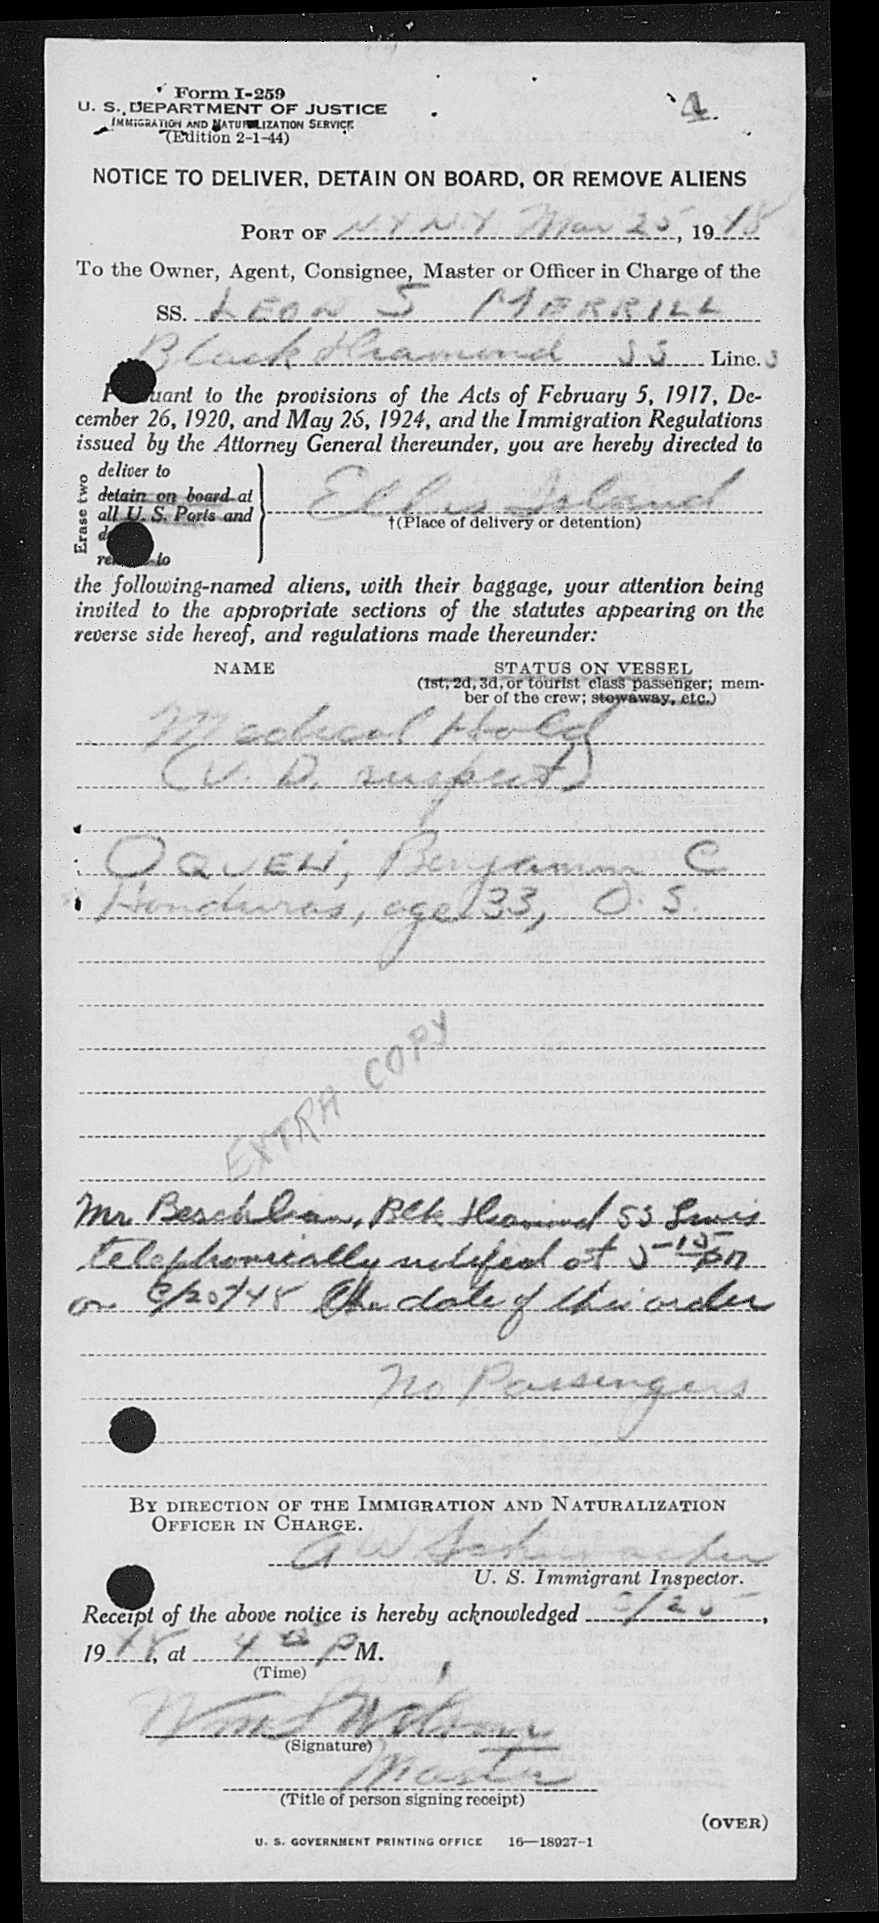 4
Form I-259
U. S. DEPARTMENT OF JUSTICE
IMMIGRATION AND NATURALIZATION SERVICE
(Edition 2-1-44)
NOTICE TO DELIVER, DETAIN ON BOARD, OR REMOVE ALIENS
PORT OF N Y N Y Mar 25, 1948
To the Owner, Agent, Consignee, Master or Officer in Charge of the
SS. LEON S MERRILL
Black Diamond SS Line.
uant to the provisions of the Acts of February 5, 1917, De-
cember 26, 1920, and May 26, 1924, and the Immigration Regulations
issued by the Attorney General thereunder, you are hereby directed to
Erase two
deliver to
detain on board at
all U. S. Ports and
to
Ellis Island
†(Place of delivery or detention)
the following-named aliens, with their baggage, your attention being
invited to the appropriate sections of the statutes appearing on the
reverse side hereof, and regulations made thereunder:
NAME STATUS ON VESSEL
(1st, 2d, 3d, or tourist class passenger; mem-
ber of the crew; stowaway, etc.)
Medical Hold
(V. D. suspect)
OQUELI, Benjamin C
Honduras, age 33, O. S.
EXTRA COPY
Mr , Blk Diamond SS Lines
telephonically notified at 5-15 pm
on /48 the date of this order
No Passengers
BY DIRECTION OF THE IMMIGRATION AND NATURALIZATION
OFFICER IN CHARGE.
A W Schumacher
U. S. Immigrant Inspector.
Receipt of the above notice is hereby acknowledged 3/25,
1948, at 4 P M.
(Time)
Wm S Wilson
(Signature)
Master
(Title of person signing receipt)
(OVER)
U. S. GOVERNMENT PRINTING OFFICE 16—18927-1